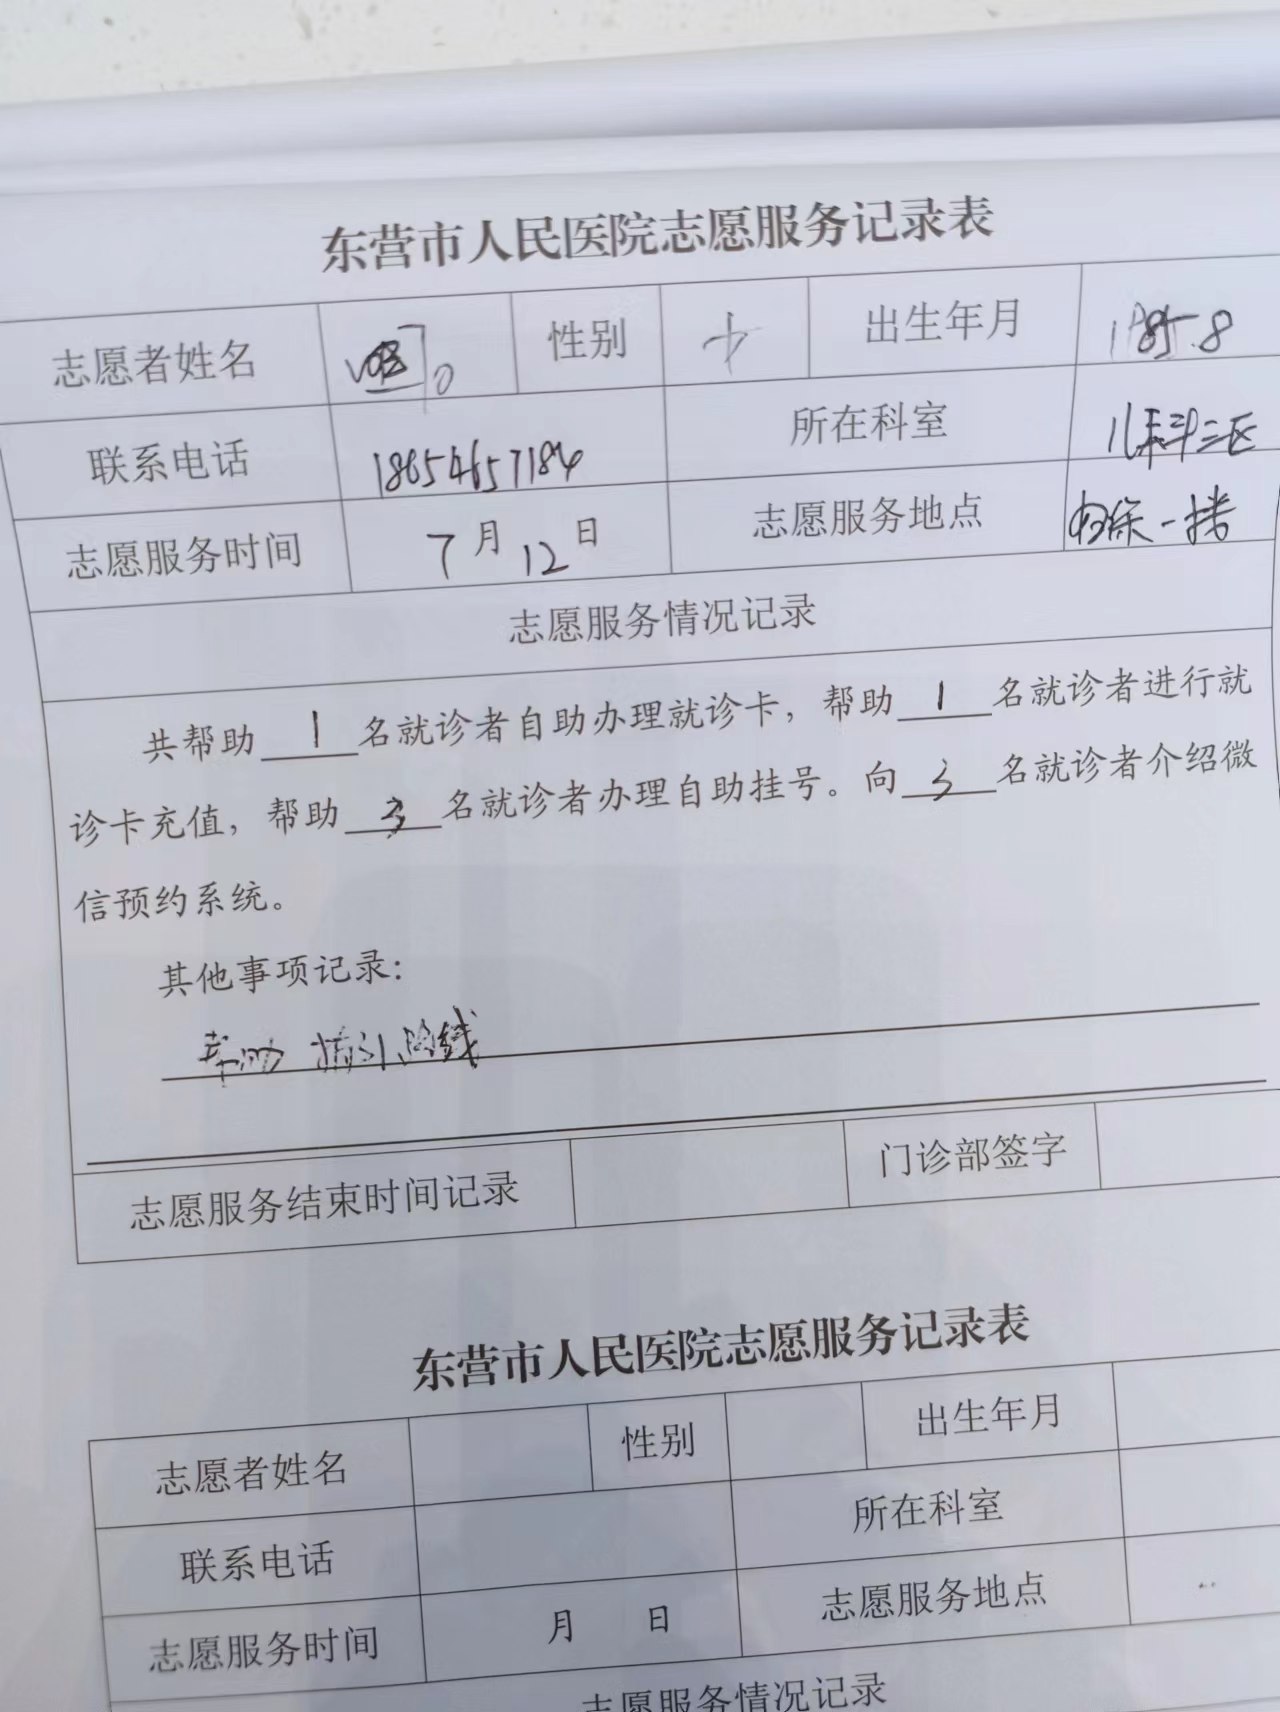 东营市人民医院志愿服务记录表
志愿者姓名 性别 出生年月 1985.8
联系电话 18654657184 所在科室 儿科三区
志愿服务时间 7月12日 志愿服务地点
志愿服务情况记录
共帮助 1 名就诊者自助办理就诊卡，帮助 1 名就诊者进行就
诊卡充值，帮助 3 名就诊者办理自助挂号。向 3 名就诊者介绍微
信预约系统。
其他事项记录：
帮助 指引路线
志愿服务结束时间记录 门诊部签字
东营市人民医院志愿服务记录表
志愿者姓名 性别 出生年月
联系电话 所在科室
志愿服务时间 月 日 志愿服务地点
志愿服务情况记录